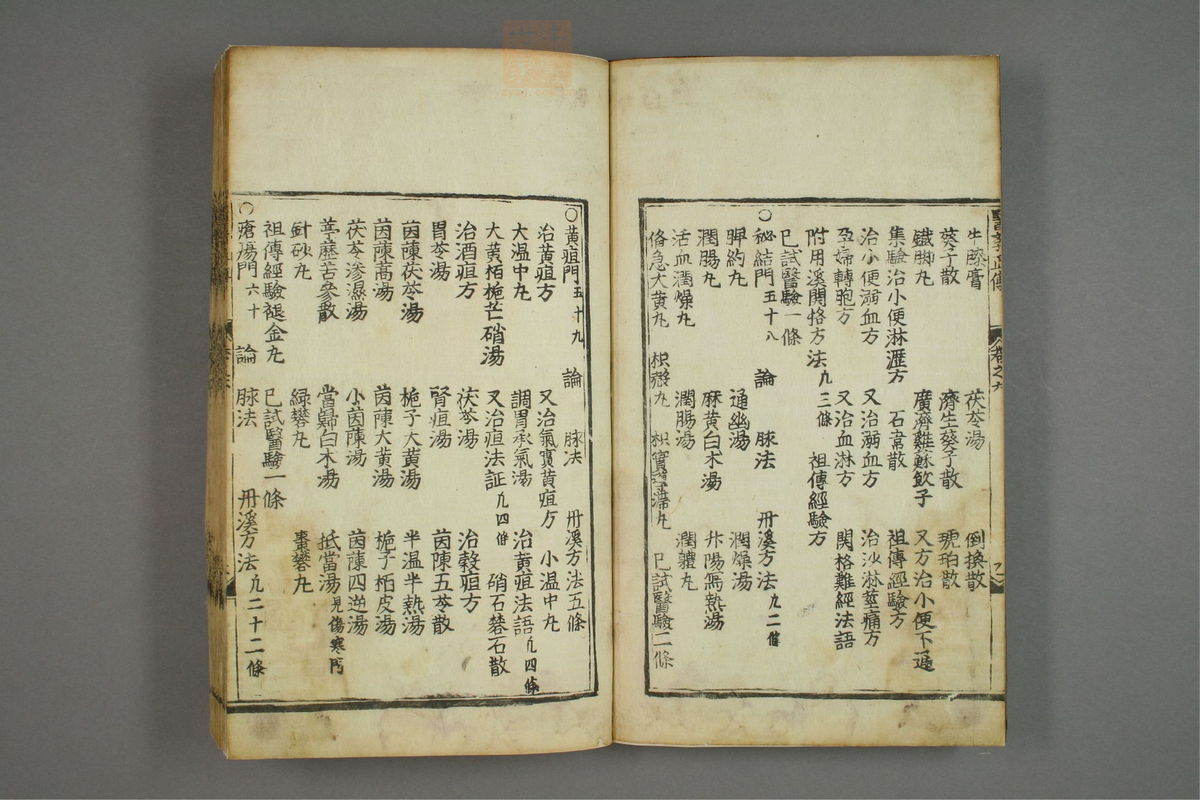 牛膝膏 茯苓湯 倒換散
葵子散 濟生葵子散 琥珀散
鐵脚丸 廣濟雞蘇飲子 又方治小便不通
集驗治小便淋瀝方 石韋散 祖傳經驗方
治小便溺血方 又治溺血方 治沙淋莖痛方
孕婦轉胞方 又治血淋方 関格難經法語
附用溪関格方法九三條 祖傳經驗方
已試醫驗一條
○秘結門五十八 論 脉法 丹溪方法九二條
脾約丸 通幽湯 潤燥湯
潤腸丸 麻黄白朮湯 升陽瀉熱湯
活血潤燥丸 潤腸湯 潤軆丸
俻急大黄丸 枳殼丸 枳實導滯丸 已試醫驗二條
○黄疸門五十九 論 脉法 丹溪方法五條
治黄疸方 又治氣實黄疸方 小温中丸
大温中丸 調胃承氣湯 治黄疸法語九四條
大黄栢梔芒硝湯 又治疸法証九四條 硝石礬石散
治酒疸方 茯苓湯 治穀疸方
胃苓湯 腎疸湯 茵陳五苓散
茵陳茯苓湯 梔子大黄湯 半温半熱湯
茵蔯蒿湯 茵陳大黄湯 梔子栢皮湯
茯苓滲濕湯 小茵蔯湯 茵蔯四逆湯
葶藶苦參散 當歸白朮湯 抵當湯見傷寒門
針砂丸 緑礬丸 棗礬丸
祖傳經驗褪金丸 已試醫驗一條
○瘡瘍門六十 論 脉法 丹溪方法九二十二條